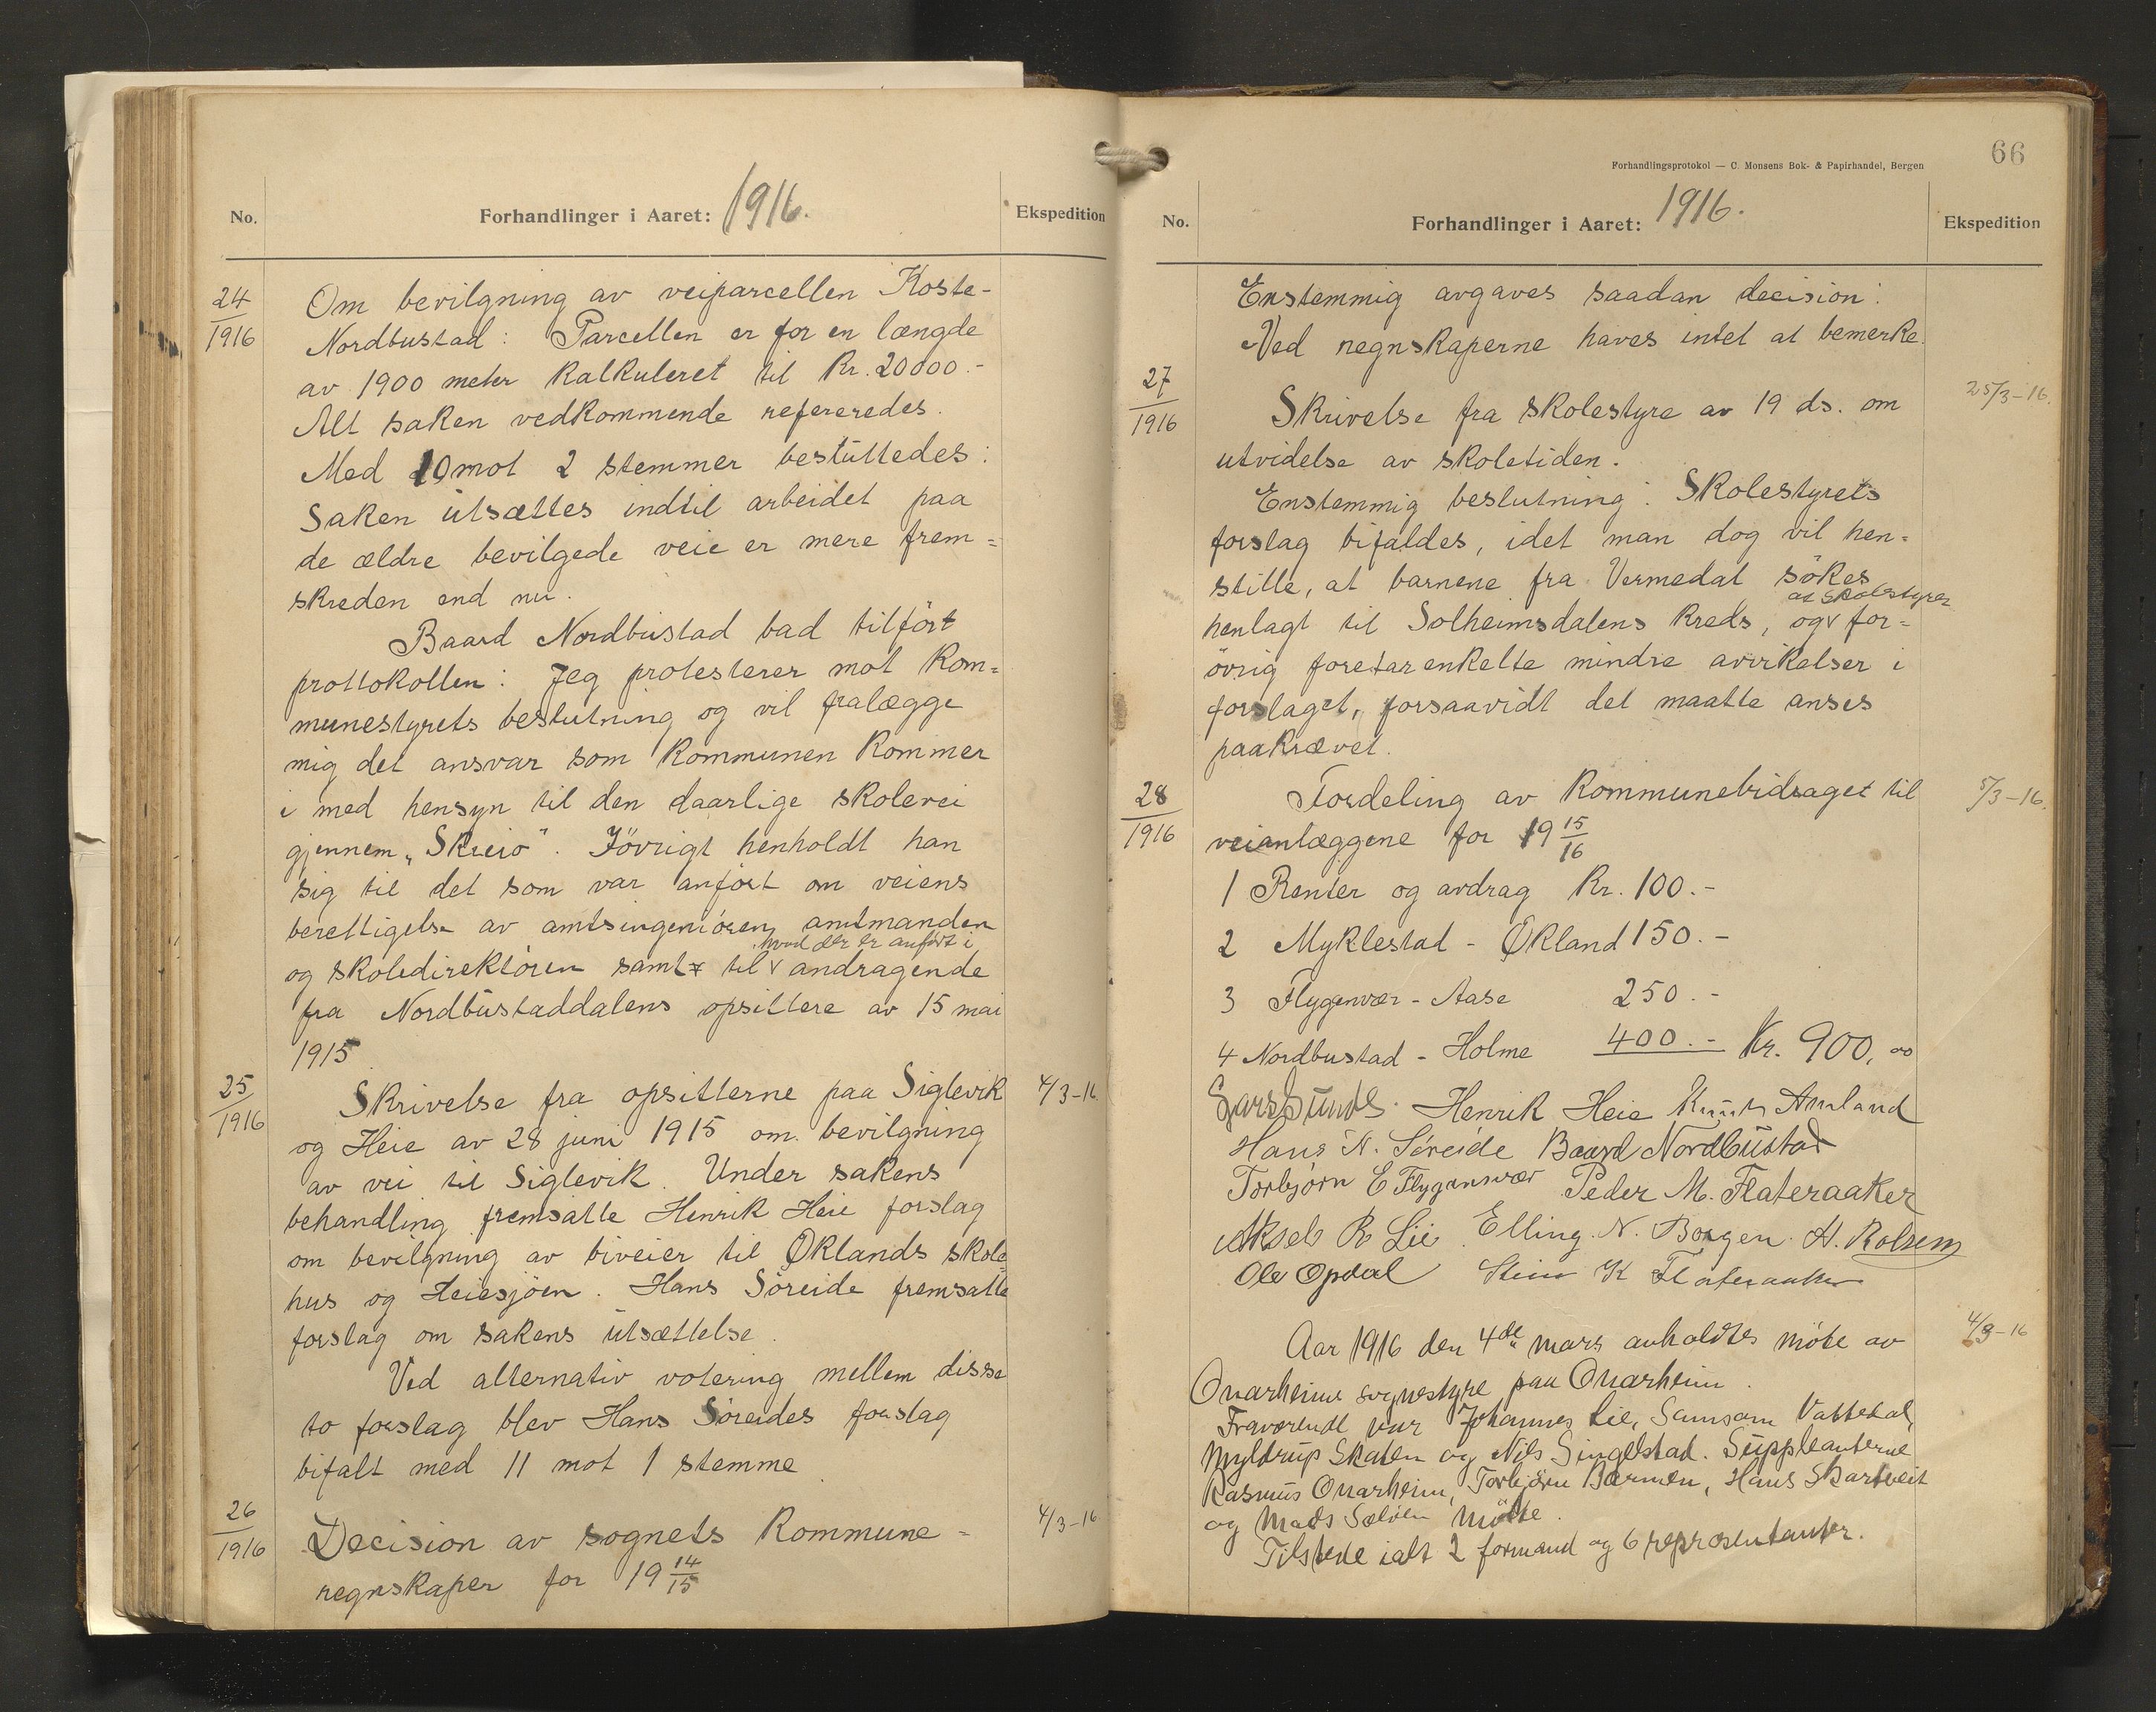 No.
Forhandlinger i Aaret: 1916.
Ekspedition
24/1916
Om bevilgning av veiparcellen Koste-
Nordbustad: Parcellen er for en længde
av 1900 meter kalkuleret til Kr. 20000.-
Alt saken vedkommende refereredes.
Med 10 mot 2 stemmer besluttedes:
Saken utsættes indtil arbeidet paa
de ældre bevilgede veie er mere frem=
skreden end nu.
Baard Nordbustad bad tilført
prottokollen: Jeg protesterer mot kom=
munestyrets beslutning og vil fralægge
mig det ansvar som kommunen kommer
i med hensyn til den daarlige skolevei
gjennem „Skreio". Iövrigt henholdt han
sig til det som var anført om veiens
berettigelse av amtsingeniören, amtmanden
hvad der er anført i
og skoledirektören samt til v andragende
fra Nordbustaddalens opsittere av 15 mai
1915
25/1916
Skrivelse fra opsitterne paa Siglevik
4/3-16
og Heie av 28 juni 1915 om bevilgning
av vei til Siglevik. Under sakens
behandling fremsatte Henrik Heie forslag
om bevilgning av biveier til Øklands skole
hus og Heiesjöen. Hans Söreide fremsatte
forslag om sakens utsættelse.
Ved alternativ votering mellem disse
to forslag blev Hans Söreides forslag
bifalt med 11 mot 1 stemme
26/1916
Decision av sognets kommune-
4/3-16
regnskaper for 19 14/15
66
Forhandlingsprotokol — C. Monsens Bok- & Papirhandel, Bergen
No.
Forhandlinger i Aaret: 1916.
Ekspedition
Enstemmig avgaves saadan decision:
Ved regnskaperne haves intet at bemerke.
27/1916
Skrivelse fra skolestyre av 19 ds. om
25/3-16.
utvidelse av skoletiden.
Enstemmig beslutning: Skolestyrets
forslag bifaldes, idet man dog vil hen=
stille, at barnene fra Vermedal sökes
at skolestyret
henlagt til Solheimsdalens kreds, og v for=
övrig foretar enkelte mindre avvikelser i
forslaget, forsaavidt det maatte anses
paakrævet.
28/1916
Fordeling av kommunebidraget til
5/3-16.
veianlæggene for 19 15/16
1 Renter og avdrag Kr. 100.-
2 Myklestad - Økland 150.-
3 Flygenvær - Aase 250.-
4 Nordbustad - Holme 400.- Kr. 900,00
Lars Sunde. Henrik Heie Knut Amland
Hans N. Söreide Baard Nordbustad
Torbjørn E Flygansvær Peder M. Flateraaker
Aksel R Lie. Elling N. Borgen. H. Rolsem
Ole Opdal Stein K Flateraaker
Aar 1916 den 4de mars anholdtes möte av
4/3-16
Onarheims sognestyre paa Onarheim.
Fraværende var Johannes Lie, Samson Vattedal,
Myldrup Skaten og Nils Singelstad. Suppleanterne
Rasmus Onarheim, Torbjörn Bærmen, Hans Skartveit
og Mads Sælöen mötte.
Tilstede ialt 2 formænd og 6 repræsentanter.